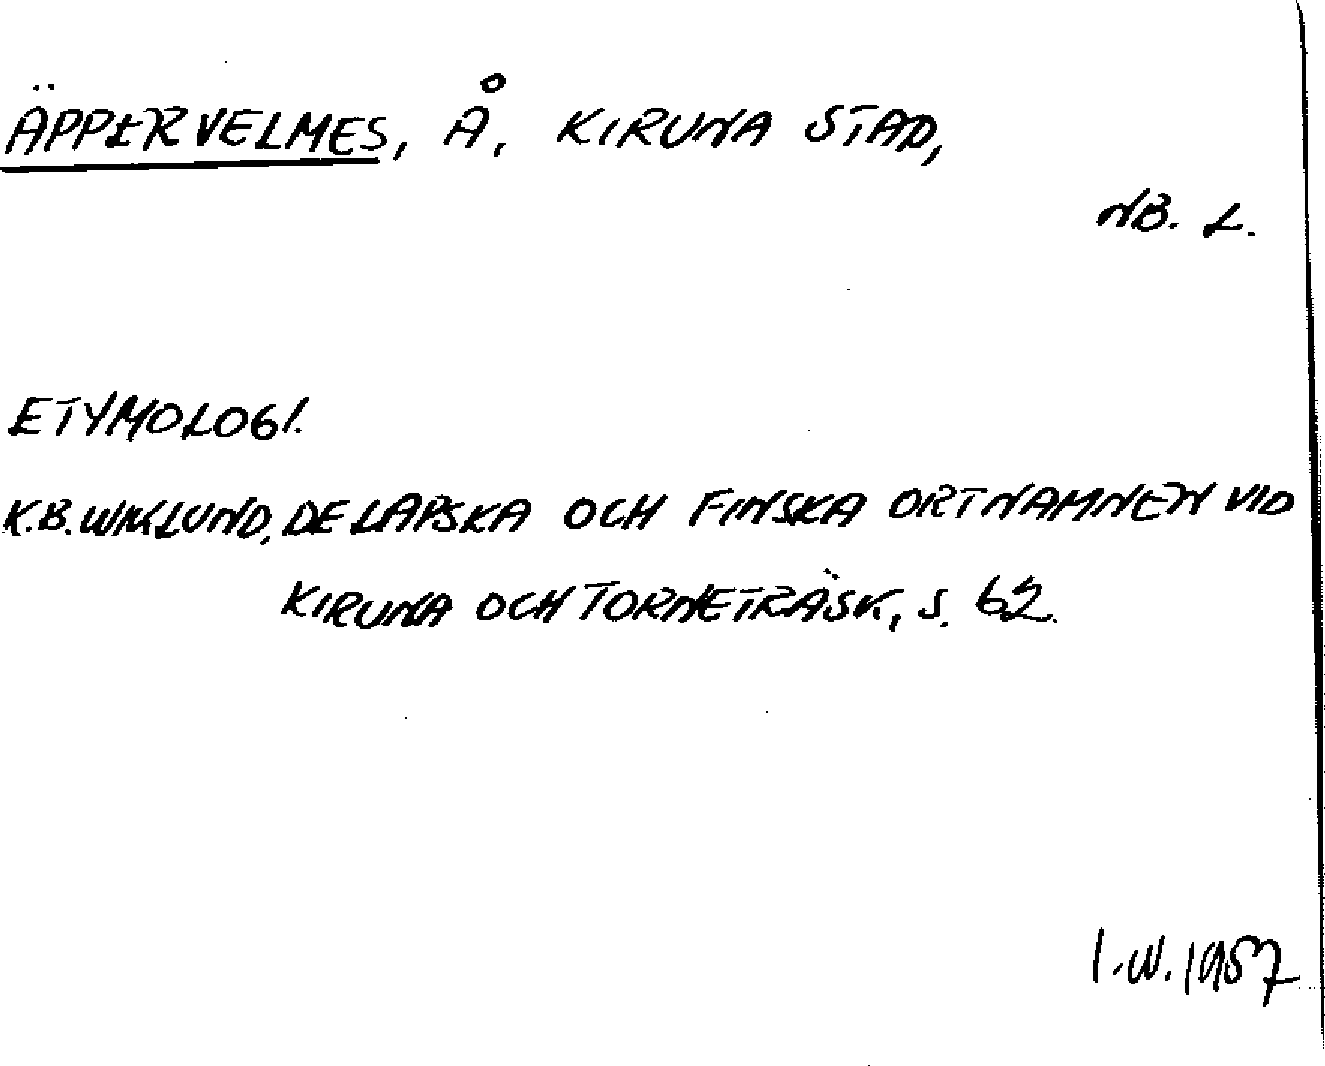 ÄPPERVELMES, Å, KIRUNA STAD,
NB. L.
ETYMOLOGI.
K.B. WIKLUND, DE LAPSKA OCH FINSKA ORTNAMNEN VID
KIRUNA OCH TORNETRÄSK, S. 62.
I.W. 1957